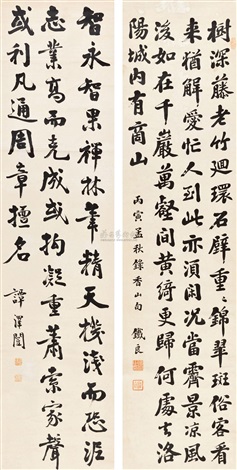 樹深藤老竹迴環石壁重〻錦翠斑俗客看
來猶解愛忙人到此亦須閒況當霽景涼風
後如在千巖萬壑間黃綺更歸何處去洛
陽城內有商山
丙寅孟秋錄香山句 鐵良
智永智果禪林筆精天機淺而恐泥
志業高而克成或拘凝重蕭索家聲
或利凡通周章擅名
譚澤闓